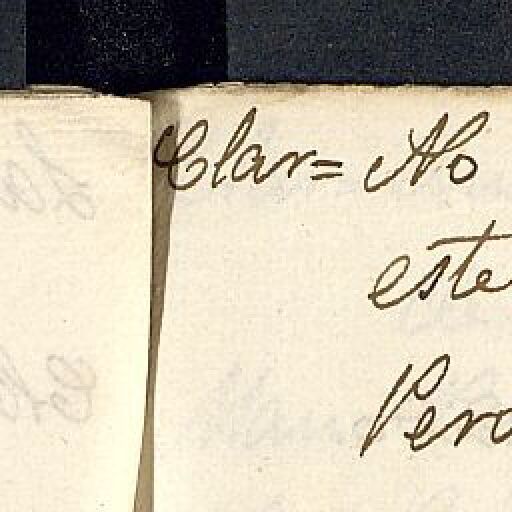 Clar= No
este
Pero